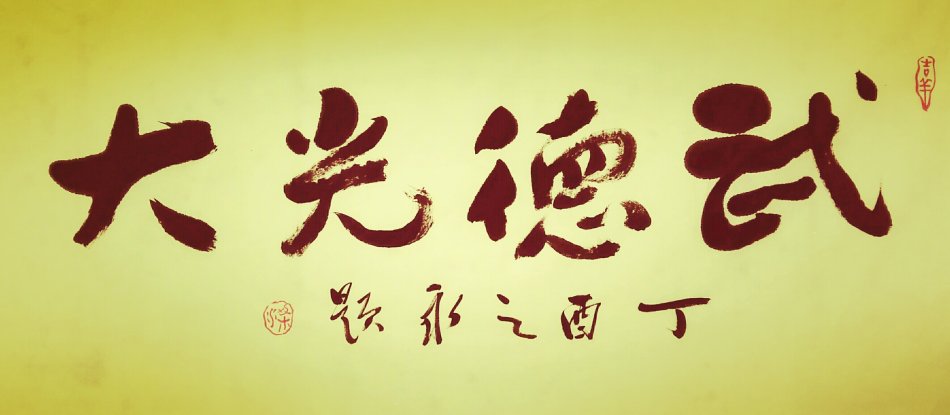 武德光大
丁酉之永题
吉羊